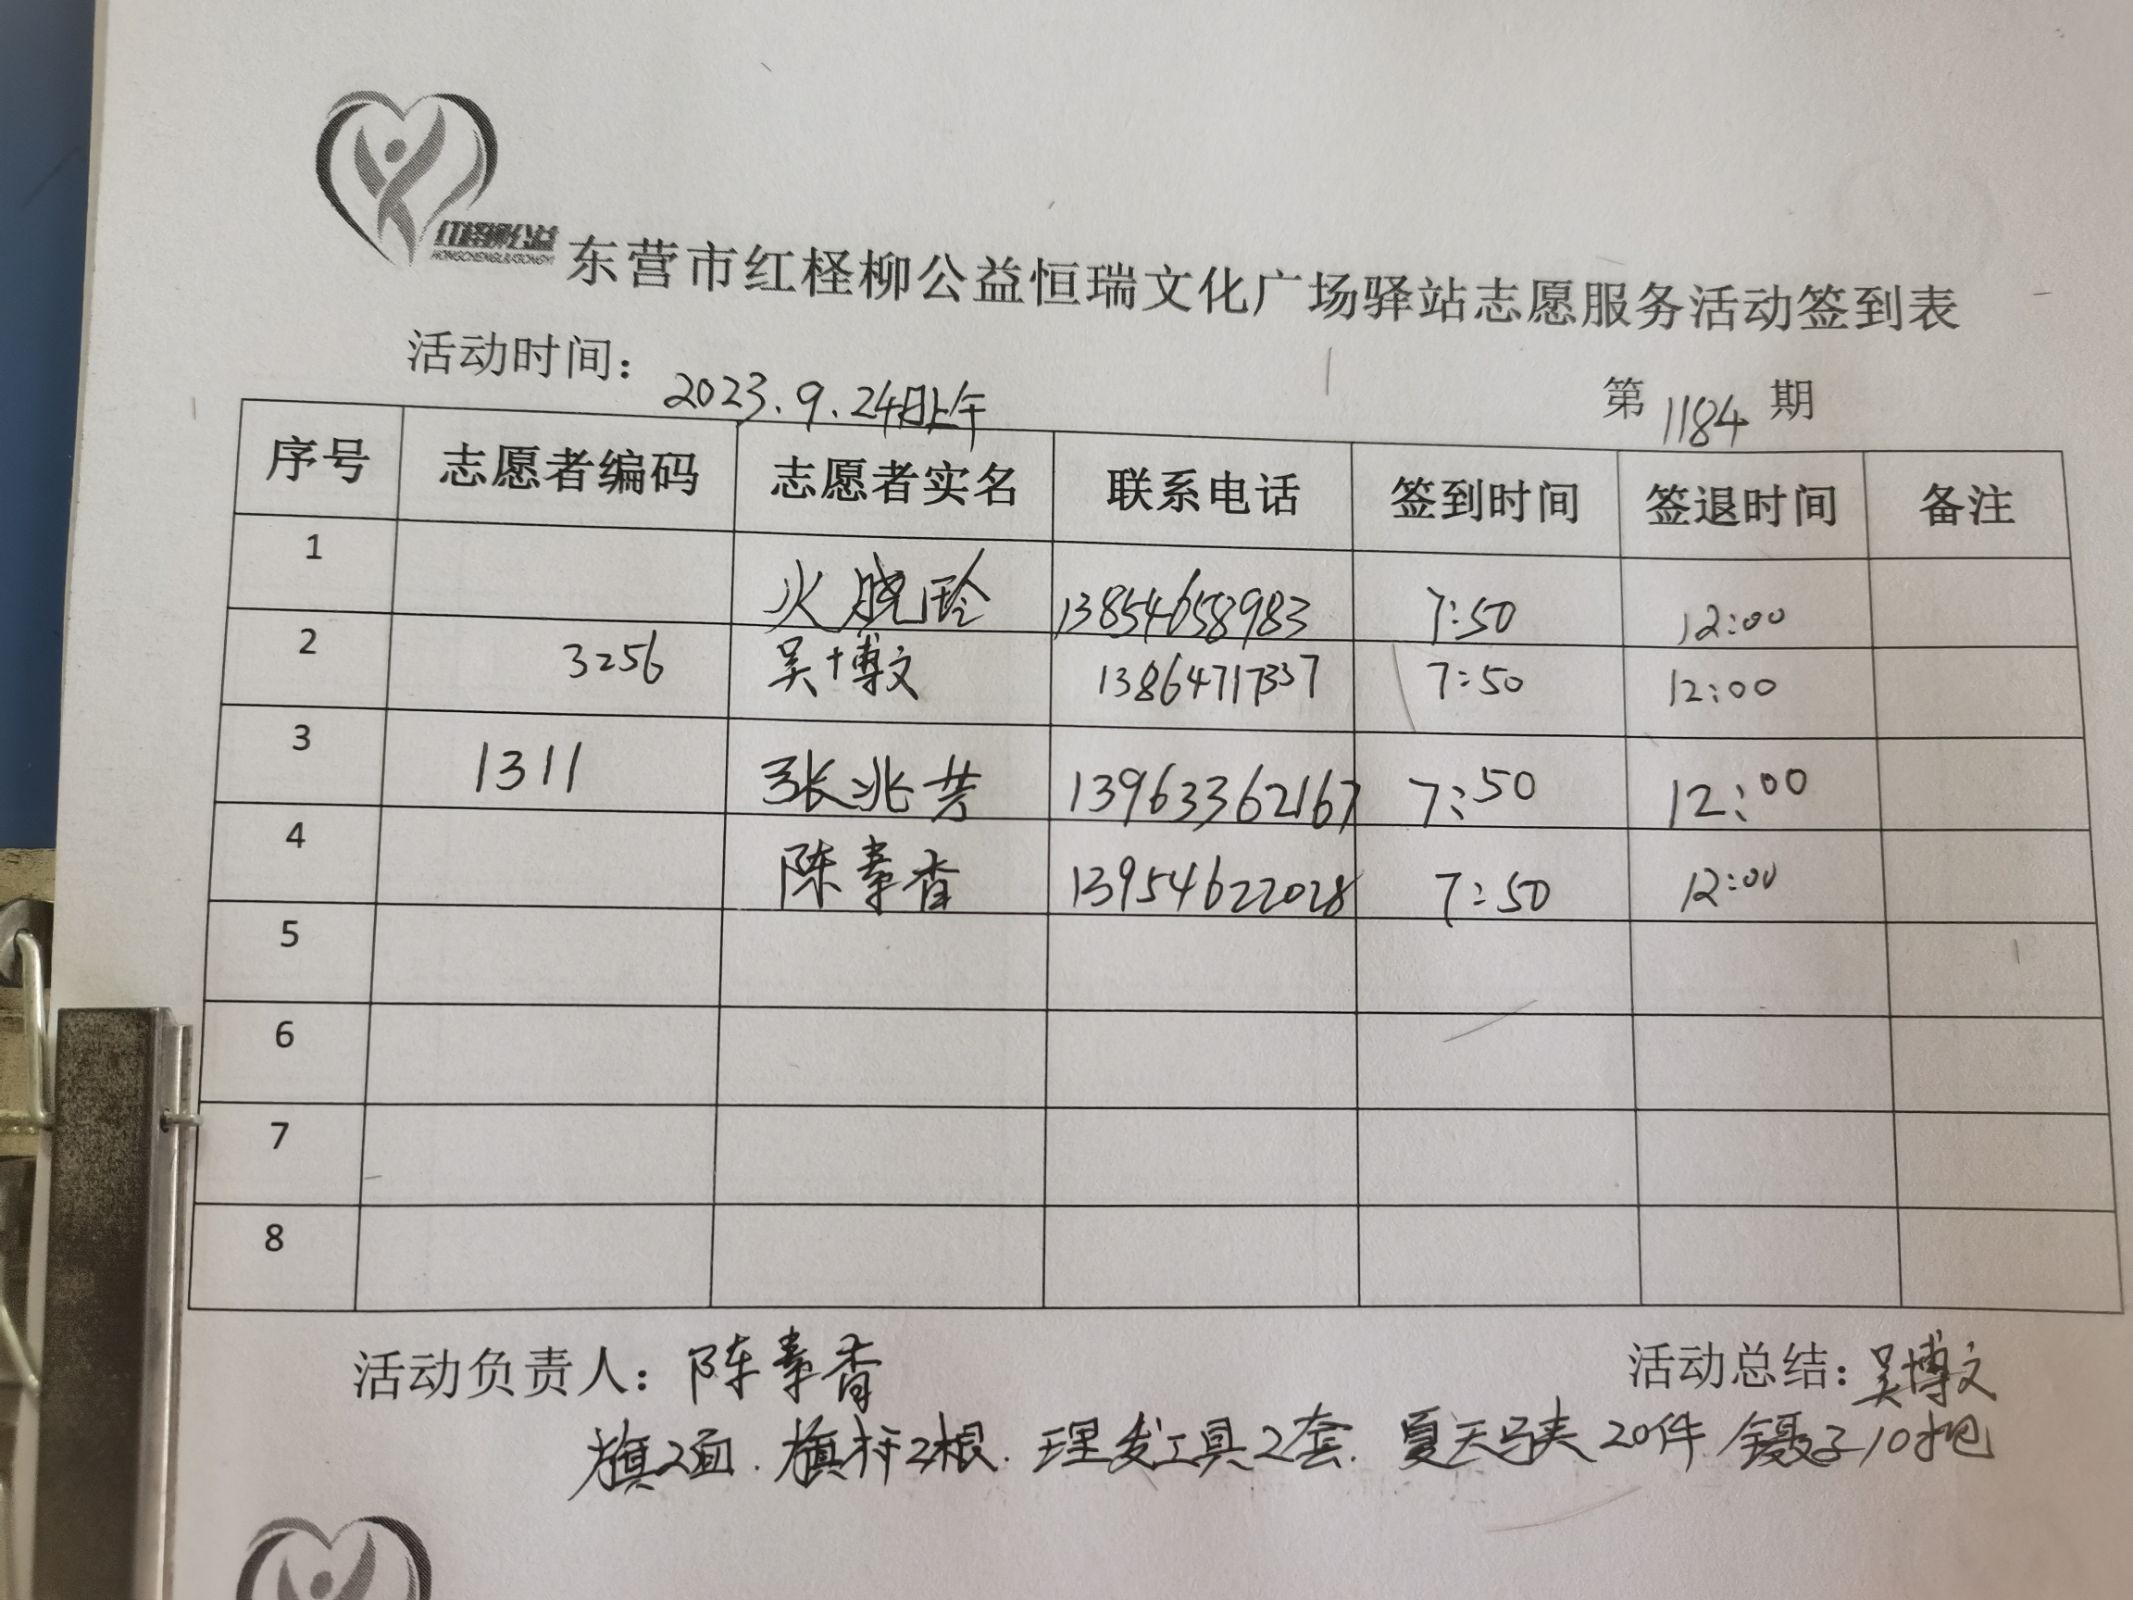 红柽柳公益
HONGCHENGLIUGONGYI
东营市红柽柳公益恒瑞文化广场驿站志愿服务活动签到表
活动时间：2023.9.24日上午 第1184期
序号 志愿者编码 志愿者实名 联系电话 签到时间 签退时间 备注
1 火晓玲 13854658983 7:50 12:00
2 3256 吴博文 13864717337 7:50 12:00
3 1311 张兆芸 13963362167 7:50 12:00
4 陈素香 13954622028 7:50 12:00
5
6
7
8
活动负责人：陈素香 活动总结：吴博文
旗2面.旗杆2根.理发工具2套.夏天马夹20件 镊子10把